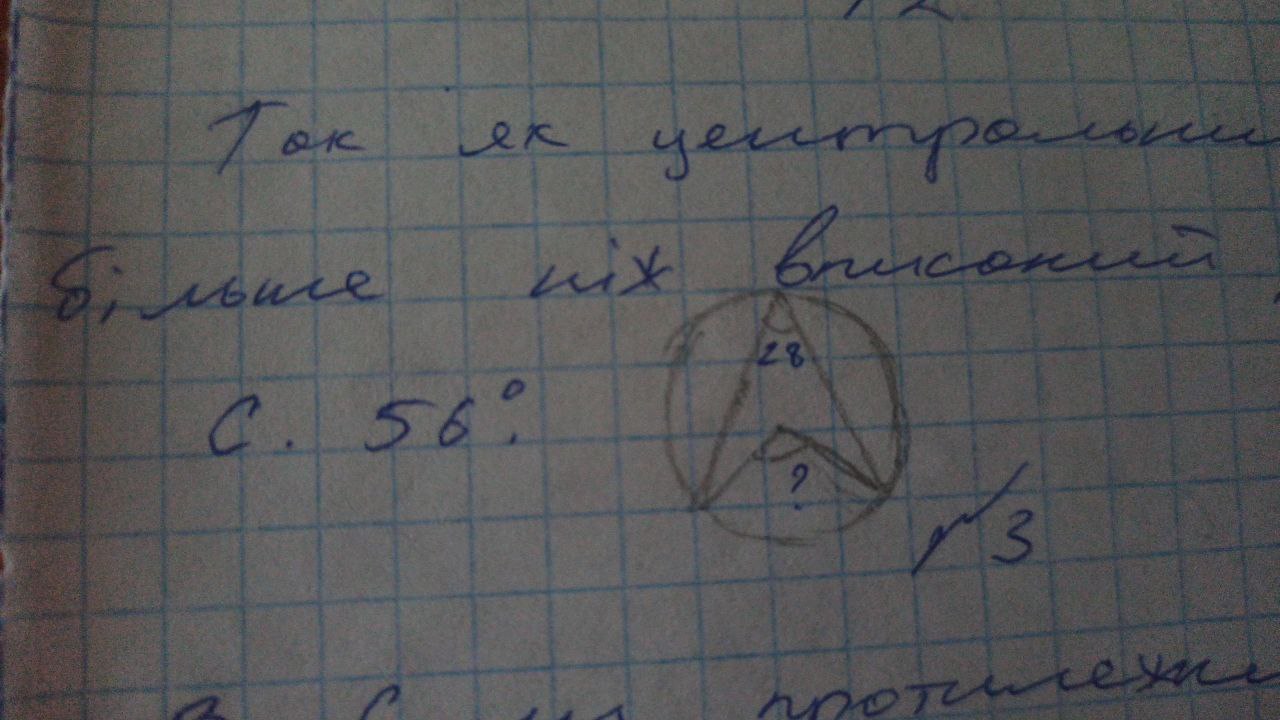 Так як центральни
більше ніж вписаний
28
С. 56°.
?
№3
протилежни